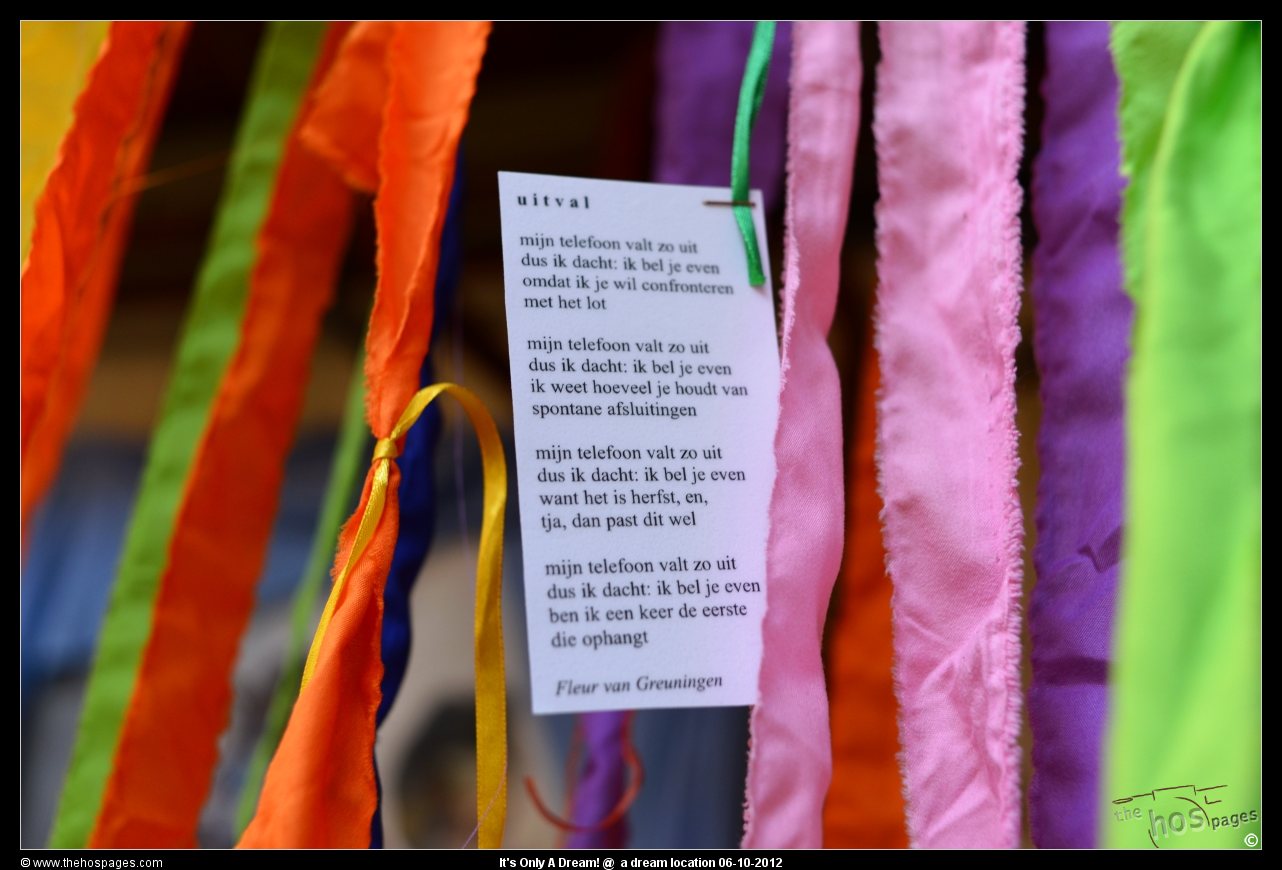 uitval
mijn telefoon valt zo uit
dus ik dacht: ik bel je even
omdat ik je wil confronteren
met het lot
mijn telefoon valt zo uit
dus ik dacht: ik bel je even
ik weet hoeveel je houdt van
spontane afsluitingen
mijn telefoon valt zo uit
dus ik dacht: ik bel je even
want het is herfst, en,
tja, dan past dit wel
mijn telefoon valt zo uit
dus ik dacht: ik bel je even
ben ik een keer de eerste
die ophangt
Fleur van Greuningen
the hos pages
©
© www.thehospages.com
It's Only A Dream! @ a dream location 06-10-2012